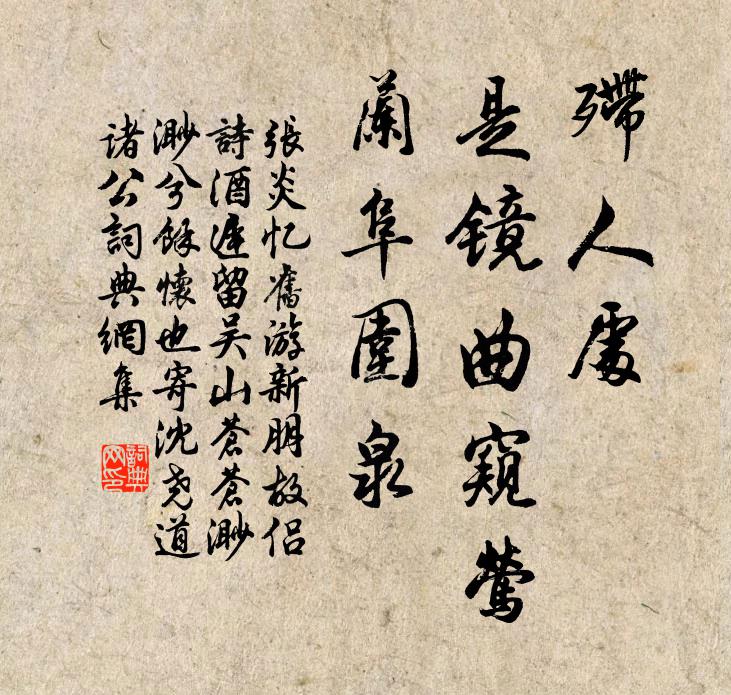 殢人處
是镜曲窺鶯
蘭阜圍泉
張炎忆舊游新朋故侣
詩酒遲留吴山蒼蒼渺
渺兮餘懷也寄沈尧道
諸公詞典網集
詞典網印